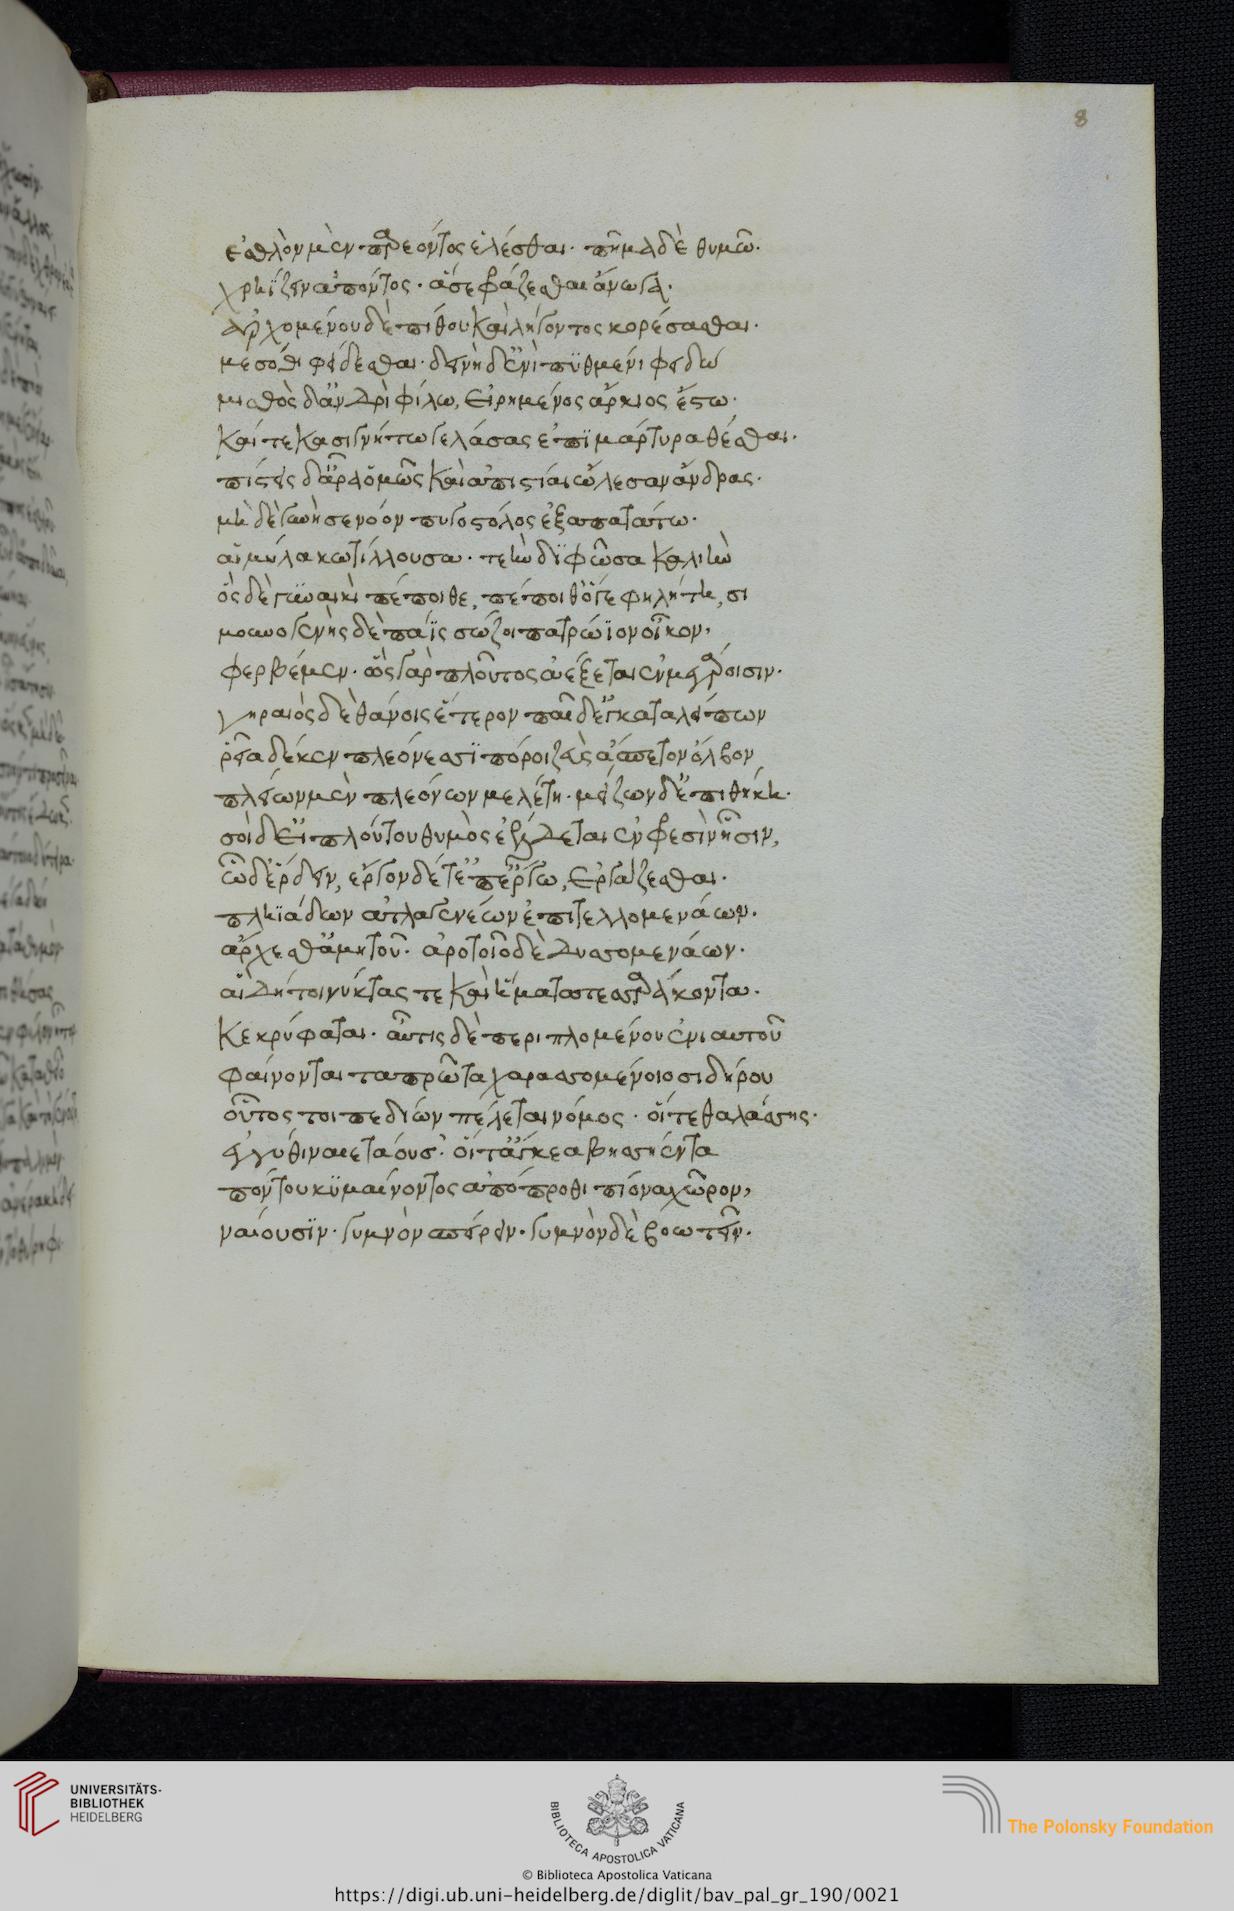 8
ἐσθλὸν μὲν παρεόντος ἑλέσθαι· πῆμα δὲ θυμῶ·
χρηΐζειν ἀπόντος· ἅ σε φράζεσθαι ἄνωγα·
ἀρχομένου δὲ πίθου καὶ λήγοντος κορέσασθαι·
μεσόθι φείδεσθαι· δεινὴ δ' ἐνὶ πϋθμένι φειδώ
μισθὸς δ' ἀνδρὶ φίλω, εἰρημένος ἄρκιος ἔστω·
καί τε κασιγνήτω γελάσας ἐπϊ μάρτυρα θέσθαι·
πίστεις δ' ἄρα ὅμῶς καὶ ἀπιστίαι ὤλεσαν ἄνδρας·
μὴ δὲ γυνή σε νόον πυγοστόλος ἐξαπατάτω·
αἱμύλα κωτίλλουσα· τεὴν διφῶσα καλιὴν
ὃς δὲ γυναικὶ πέποιθε, πέποιθ' ὅγε φηλήτη,σι
μουνογενὴς δὲ πάϊς σώζοι πατρώϊον οἶκον,
φερβέμεν· ὣς γὰρ πλοῦτος ἀέξεται ἐν μεγάροισιν·
γηραιὸς δὲ θάνοις ἕτερον παῖδ' ἐγκαταλείπων
ῥεῖα δέ κεν πλεόνεσσϊ πόροι ζεὺς ἄσπετον ὄλβον
πλείων μὲν πλεόνων μελέτη· μείζων δ' ἐπιθήκη·
σοὶ δ' εἰ πλούτου θυμὸς ἐέλδεται ἐν φρεσὶν ᾗσιν,
ὧδ' ἔρδειν, ἔργον δέ τ' ἐπ' ἔργω, ἐργάζεσθαι·
πληϊάδων ἀτλαγενέων ἐπιτελλομενάων·
ἄρχεσθ' ἀμητοῦ· ἀρότοιο δὲ δυσσομενάων·
αἳ δή τοι νύκτας τε καὶ ἤματα τεσσαράκοντα·
κεκρύφαται· αὖτις δὲ περιπλομένου ἐνιαυτοῦ
φαίνονται ταπρῶτα χαρασσομένοιο σιδήρου
οὗτος τοι πεδίων πέλεται νόμος· οἵ τε θαλάσσης·
ἐγγύθι ναιετάουσ'· οἵ τ' ἄγκεα βησσήεντα
πόντου κϋμαίνοντος ἀπόπροθι πίονα χῶρον,
ναίουσϊν· γυμνὸν σπείρειν· γυμνὸν δὲ βοωτεῖν·
UNIVERSITÄTS-
BIBLIOTHEK
HEIDELBERG
BIBLIOTECA APOSTOLICA VATICANA
The Polonsky Foundation
© Biblioteca Apostolica Vaticana
https://digi.ub.uni-heidelberg.de/diglit/bav_pal_gr_190/0021